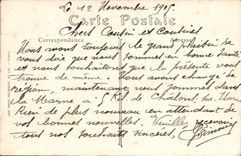 Le 12 Novembre 1915
Carte Postale
Correspondance
Chers Cousin et Cousines
Nous avons toujours le grand plaisir de
vous dire que nous sommes en bonne santé
et nous souhaitons que la présente vous
trouve de même. Nous avons changé de
région, maintenant nous sommes dans
la Marne à 5 Kil de Châlons, s. M.
Rien de plus nouveau en attendant de
vos bonnes nouvelles. Veuillez recevoir
tous nos souhaits sincères.